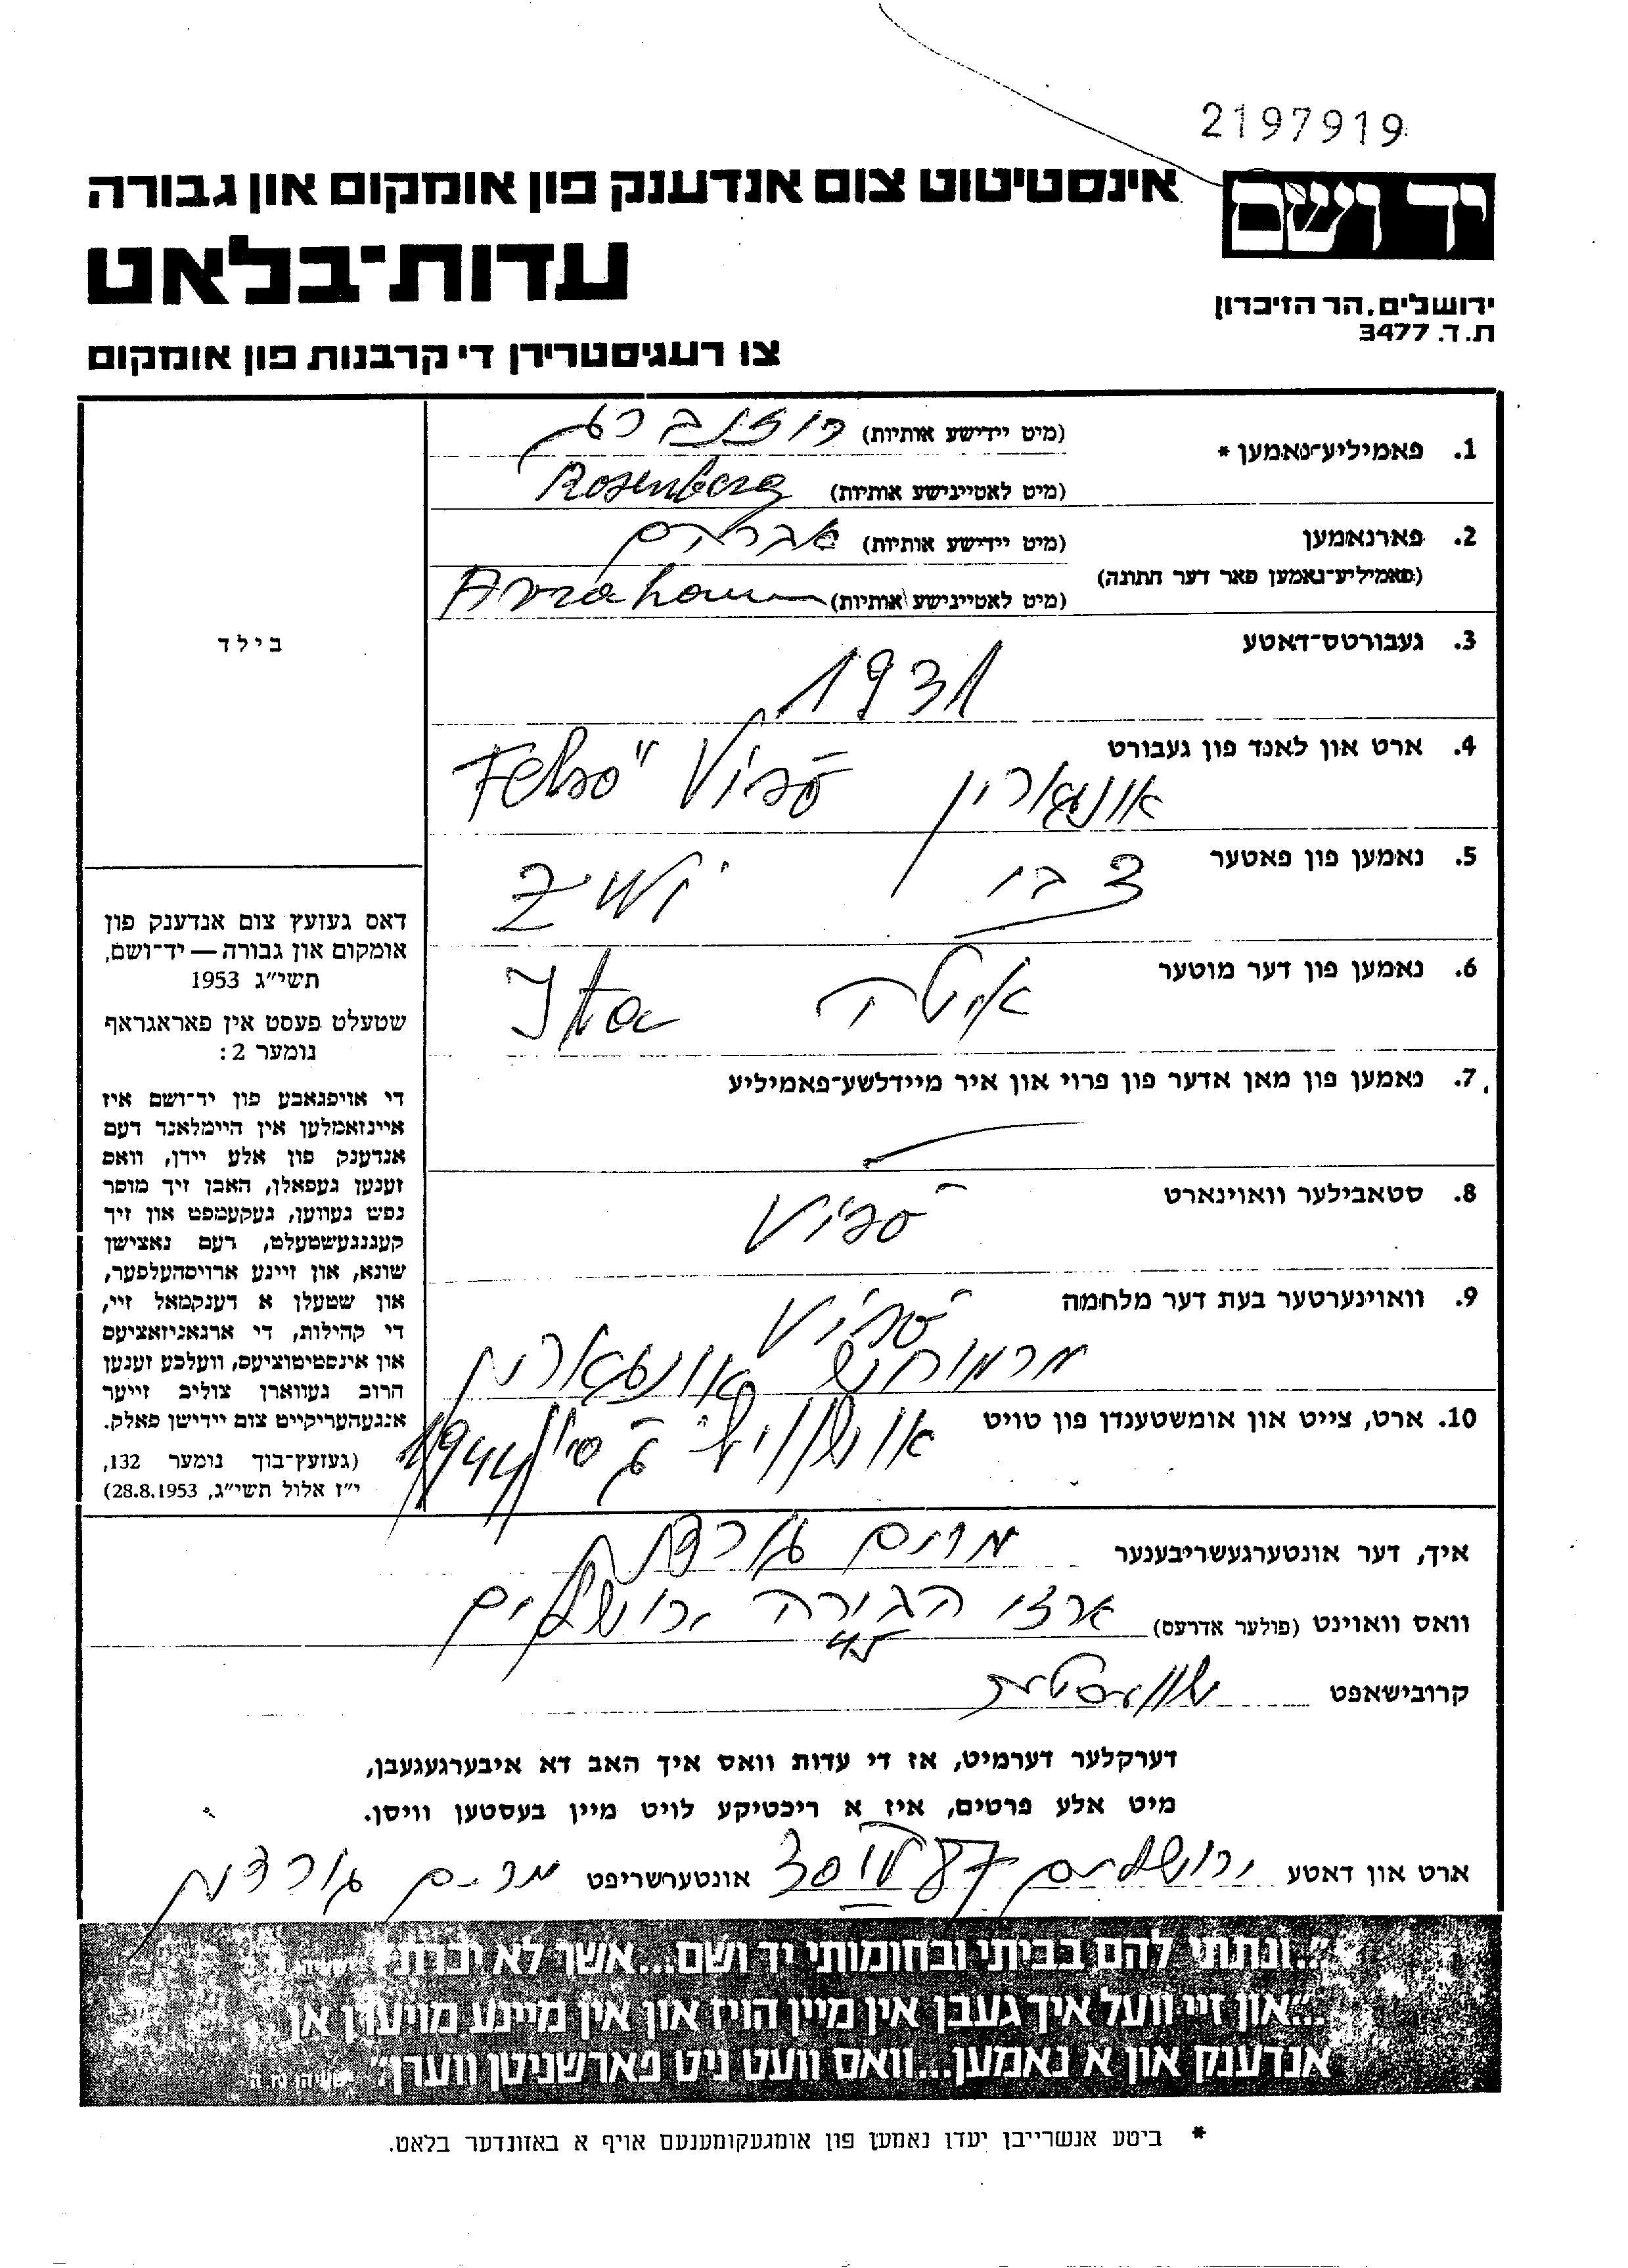 2197919
יד ושם
אינסטיטוט צום אנדענק פון אומקום און גבורה
עדות־בלאט
ירושלים, הר הזיכרון
ת.ד. 3477
צו רעגיסטרירן די קרבנות פון אומקום
1. פאמיליע־נאמען * (מיט יידישע אותיות) רוזנברג
(מיט לאטיינישע אותיות) Rosenberg
2. פארנאמען (מיט יידישע אותיות) אברהם
(פאמיליע־נאמען פאר דער חתונה)
(מיט לאטיינישע אותיות) Avraham
3. געבורטס־דאטע
1931
4. ארט און לאנד פון געבורט
אונגארין Felsö Visó
5. נאמען פון פאטער
צבי Zwi
6. נאמען פון דער מוטער
איטה Ita
7. נאמען פון מאן אדער פון פרוי און איר מיידלשע־פאמיליע
8. סטאבילער וואוינארט
9. וואוינערטער בעת דער מלחמה
10. ארט, צייט און אומשטענדן פון טויט
1944
בילד
דאס געזעץ צום אנדענק פון
אומקום און גבורה — יד־ושם,
תשי״ג 1953
שטעלט פעסט אין פאראגראף
נומער 2:
די אויפגאבע פון יד־ושם איז
איינזאמלען אין היימלאנד דעם
אנדענק פון אלע יידן, וואס
זענען געפאלן, האבן זיך מוסר
נפש געווען, געקעמפט און זיך
קעגנגעשטעלט, דעם נאצישן
שונא, און זיינע ארויסהעלפער,
און שטעלן א דענקמאל זיי,
די קהילות, די ארגאניזאציעס
און אינסטיטוציעס, וועלכע זענען
חרוב געווארן צוליב זייער
אנגעהעריקייט צום יידישן פאלק.
(געזעץ־בוך נומער 132,
י״ז אלול תשי״ג, 28.8.1953)
איך, דער אונטערגעשריבענער מרים גורדון
וואס וואוינט (פולער אדרעס) ארזי הבירה ירושלים
קרובישאפט
דערקלער דערמיט, אז די עדות וואס איך האב דא איבערגעגעבן,
מיט אלע פרטים, איז א ריכטיקע לויט מיין בעסטען וויסן.
ארט און דאטע ירושלים אונטערשריפט מרים גורדון
״...ונתתי להם בביתי ובחומותי יד ושם...אשר לא יכרת״
״...און זיי וועל איך געבן אין מיין הויז און אין מיינע מויערן אן
אנדענק און א נאמען...וואס וועט ניט פארשניטן ווערן״ ישעיהו נו ה׳
* ביטע אנשרייבן יעדן נאמען פון אומגעקומענעם אויף א באזונדער בלאט.